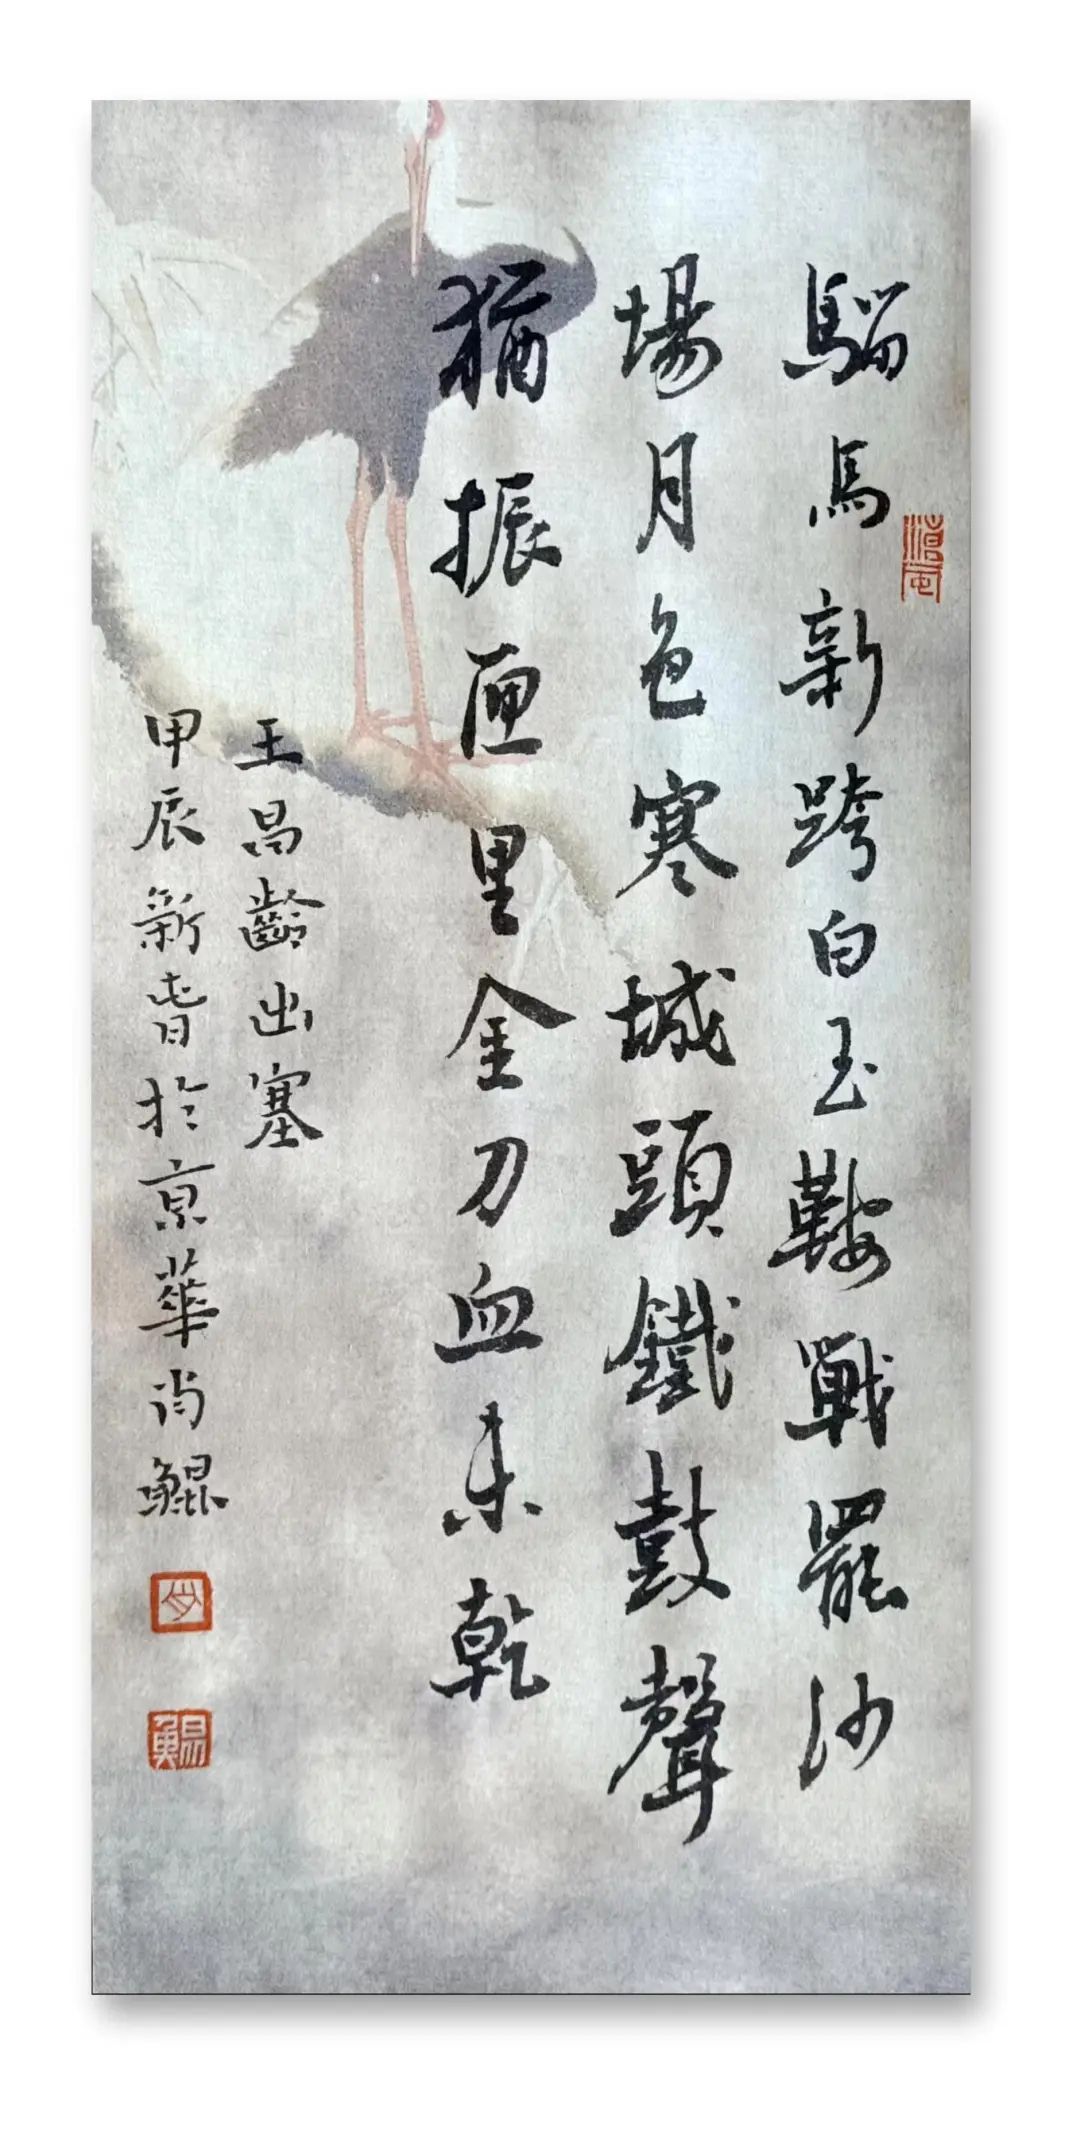 騮馬新跨白玉鞍戰罷沙
場月色寒城頭鐵鼓聲
猶振匣里金刀血未乾
王昌齡出塞
甲辰新春於京華尚鯤